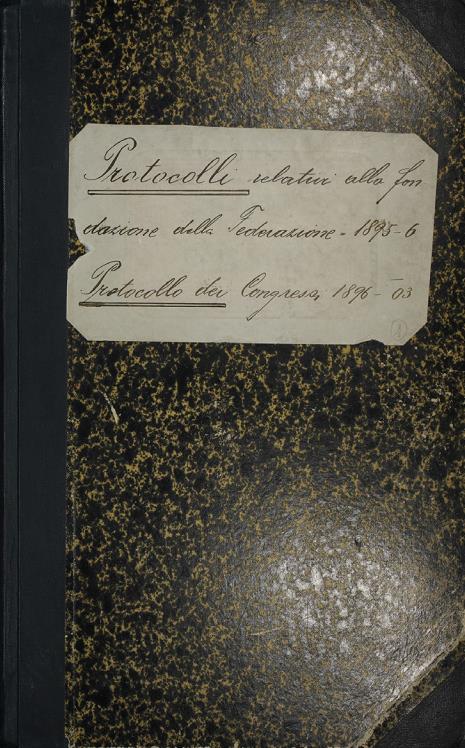 Protocolli relativi alla fon
dazione della Federazione - 1895-6
Protocollo dei Congressi 1896 - 03
1